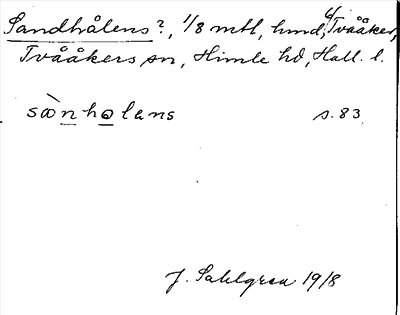 Sandhålens?, 1/8 mtl, hmd, u/ Tvååker,
Tvååkers sn, Himle hd, Hall. l.
sànhalans s. 83
J. Sahlgren 1918